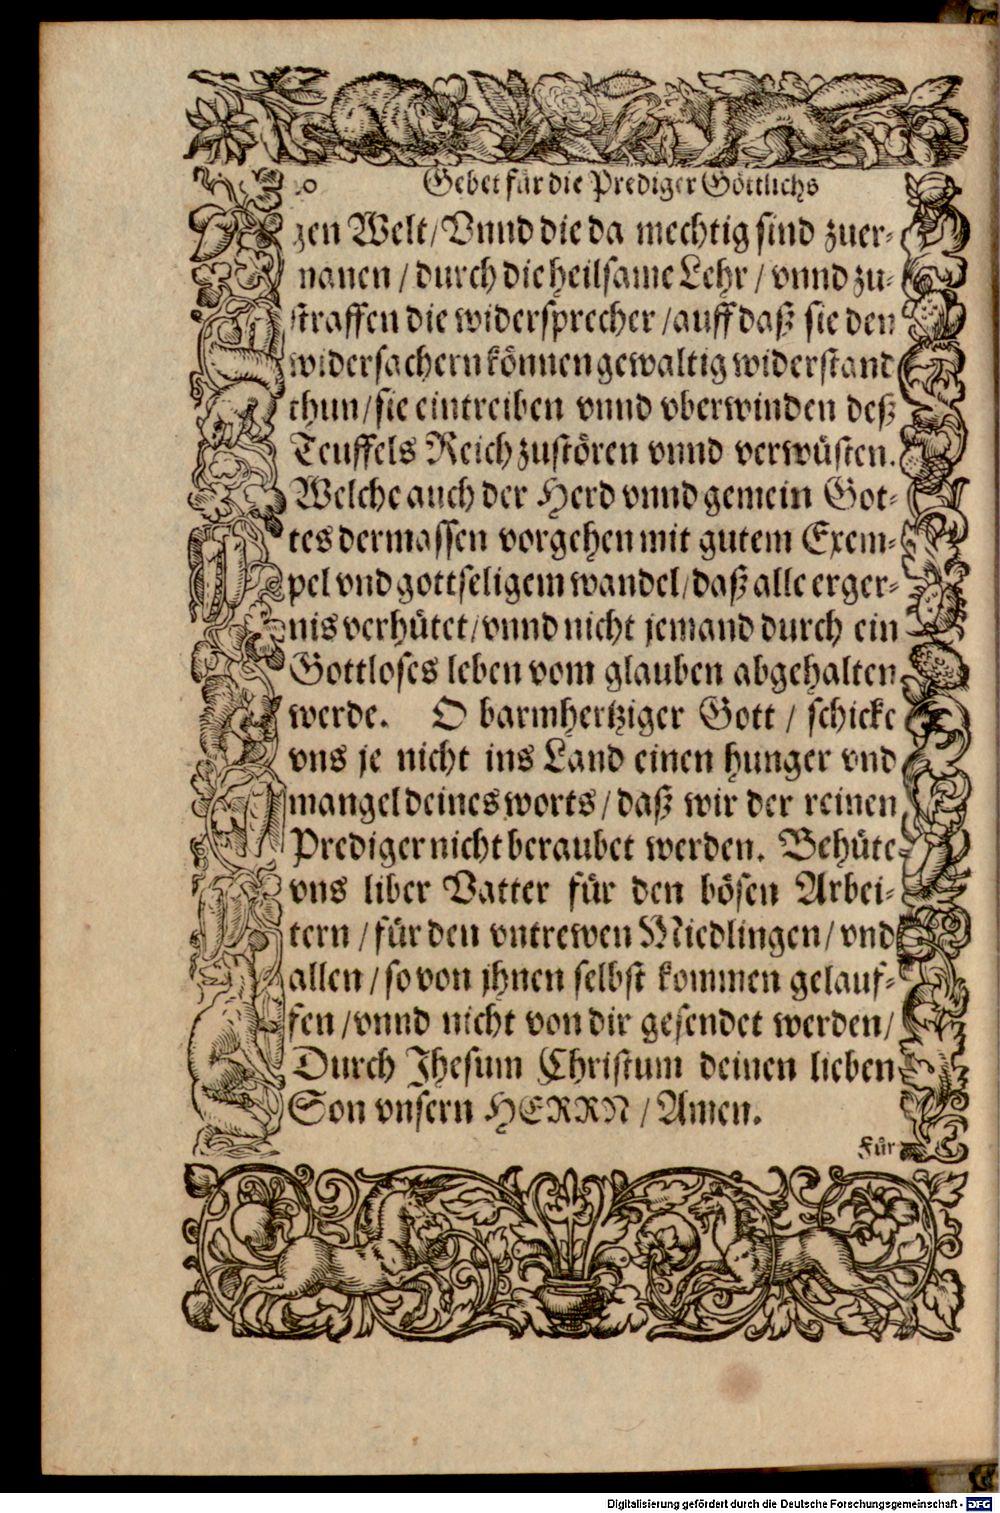 Gebet für die Prediger Göttlichs
zen Welt/ Vnnd die da mechtig sind zuer-
manen / durch die heilsame Lehr / vnnd zu-
straffen die widersprecher / auff daß sie den
widersachern können gewaltig widerstand
thun / sie eintreiben vnnd vberwinden deß
Teuffels Reich zustören vnnd verwüsten.
Welche auch der Herd vnnd gemein Got-
tes dermassen vorgehen mit gutem Exem-
pel vnd gottseligem wandel / daß alle erger-
nis verhütet / vnnd nicht jemand durch ein
Gottloses leben vom glauben abgehalten
werde. O barmhertziger Gott / schicke
vns je nicht ins Land einen hunger vnd
mangel deines worts / daß wir der reinen
Prediger nicht beraubet werden. Behüte
vns liber Vatter für den bösen Arbei-
tern / für den vntrewen Miedlingen / vnd
allen / so von jhnen selbst kommen gelauf-
fen / vnnd nicht von dir gesendet werden /
Durch Jhesum Christum deinen lieben
Son vnsern HERRN / Amen.
Für
Digitalisierung gefördert durch die Deutsche Forschungsgemeinschaft - DFG